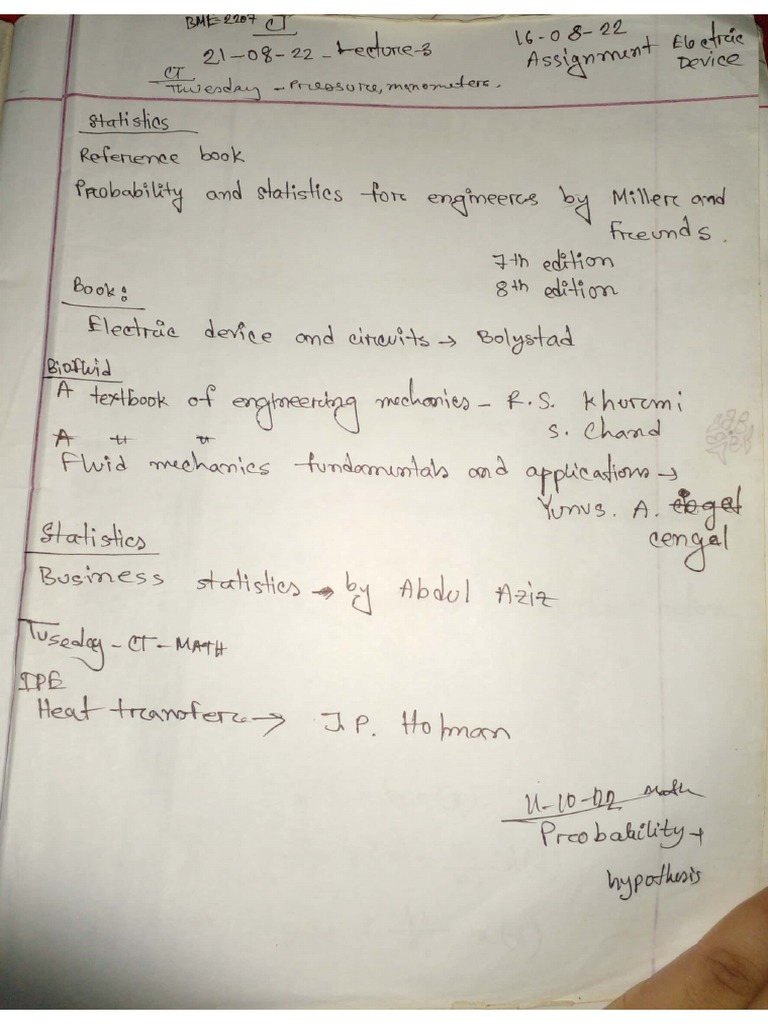 BME-2207 CT
21-08-22 - Lecture-3
CT
Tuesday - Pressure, manometers.
16-08-22
Assignment Electric Device
Statistics
Reference book
Probability and statistics for engineers by Miller and
Freunds.
7th edition
8th edition
Book:
Electric device and circuits → Bolystad
Biofluid
A textbook of engineering mechanics - R.S. Khurmi
S. Chand
A " "
Fluid mechanics fundamentals and applications →
Yunus. A.
cengel
Statistics
Business statistics → by Abdul Aziz
Tuseday - CT - MATH
IPE
Heat transfer → J.P. Holman
11-10-22 Math
Probability +
hypothesis